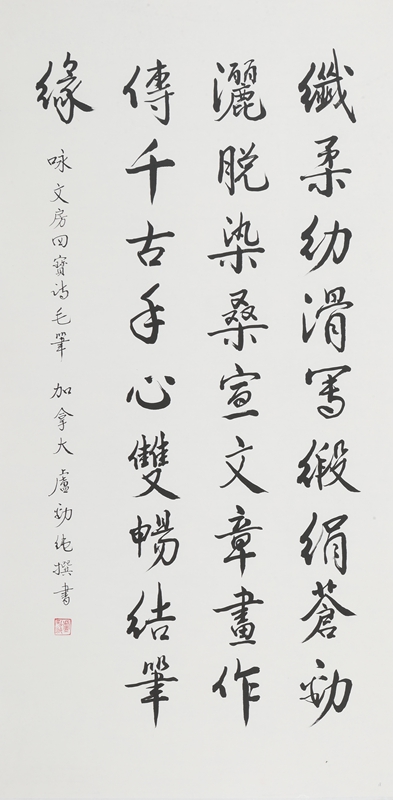 纖柔幼滑寫緞絹蒼勁
灑脫染桑宣文章畫作
傳千古手心雙暢結筆
緣
咏文房四寶詩毛筆 加拿大盧勁純撰書